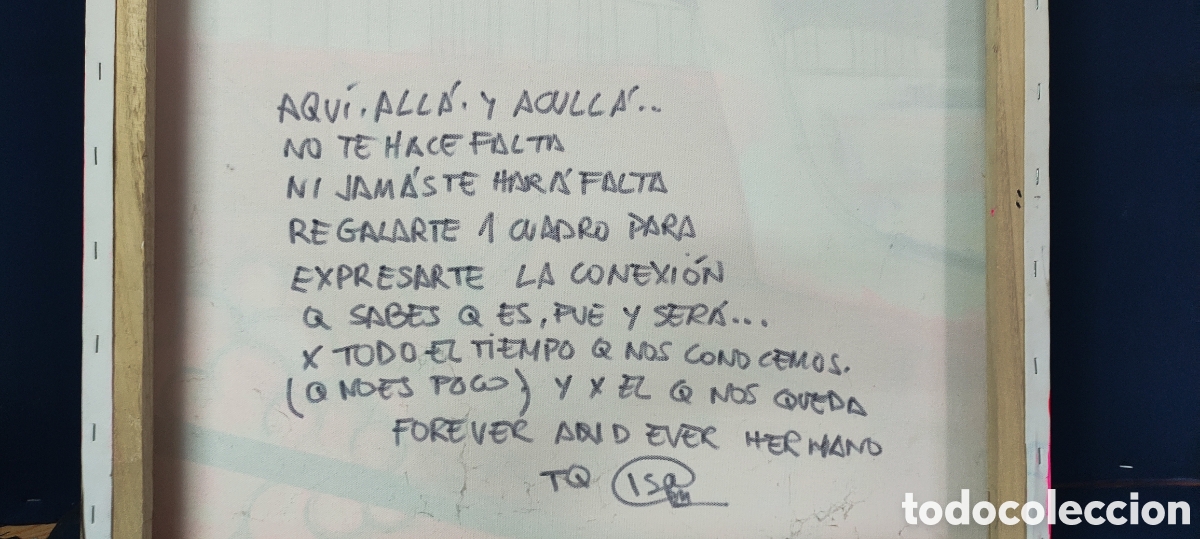 AQUÍ, ALLÁ. Y ACULLÁ..
NO TE HACE FALTA
NI JAMÁS TE HARÁ FALTA
REGALARTE 1 CUADRO PARA
EXPRESARTE LA CONEXIÓN
Q SABES Q ES, FUE Y SERÁ...
X TODO EL TIEMPO Q NOS CONOCEMOS.
(Q NO ES POCO) Y X EL Q NOS QUEDA
FOREVER AND EVER HERMANO
TQ ISA
todocoleccion